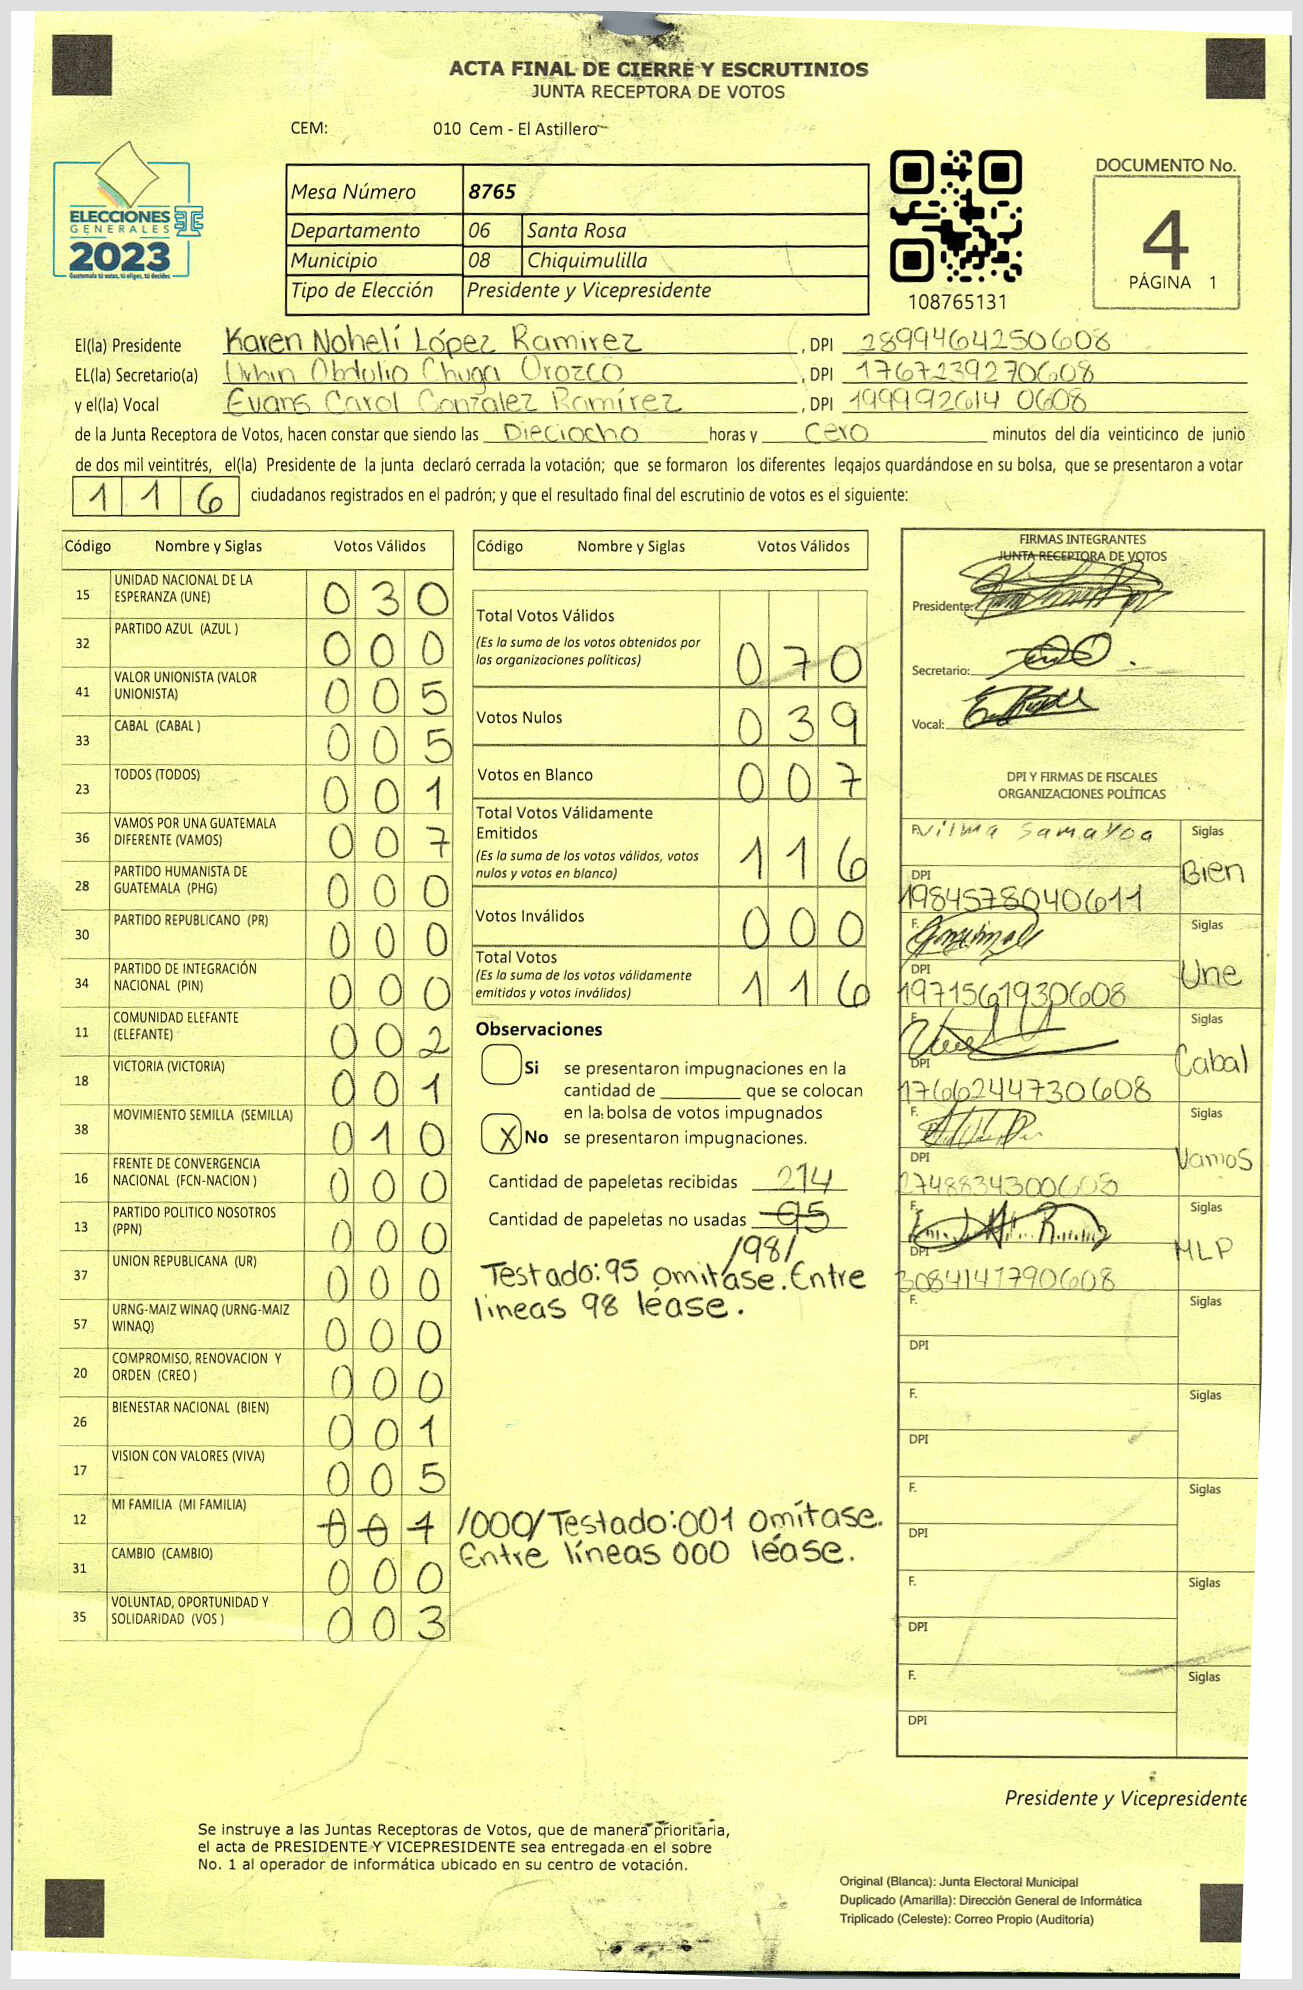 ACTA FINAL DE CIERRE Y ESCRUTINIOS
JUNTA RECEPTORA DE VOTOS
CEM: 010 Cem - El Astillero
ELECCIONES
GENERALES
2023
Guatemala tú votas, tú eliges, tú decides
Mesa Número 8765
Departamento 06 Santa Rosa
Municipio 08 Chiquimulilla
Tipo de Elección Presidente y Vicepresidente
108765131
DOCUMENTO No.
4
PÁGINA 1
El(la) Presidente Karen Nohelí López Ramirez, DPI 2899464250608
EL(la) Secretario(a) Obdulio Chuga Orozco, DPI 1767239270608
y el(la) Vocal Evans Carol González Ramírez, DPI 1999926140608
de la Junta Receptora de Votos, hacen constar que siendo las Dieciocho horas y Cero minutos del día veinticinco de junio
de dos mil veintitrés, el(la) Presidente de la junta declaró cerrada la votación; que se formaron los diferentes legajos guardándose en su bolsa, que se presentaron a votar
116 ciudadanos registrados en el padrón; y que el resultado final del escrutinio de votos es el siguiente:
Código Nombre y Siglas Votos Válidos
15 UNIDAD NACIONAL DE LA ESPERANZA (UNE) 030
32 PARTIDO AZUL (AZUL ) 000
41 VALOR UNIONISTA (VALOR UNIONISTA) 005
33 CABAL (CABAL ) 005
23 TODOS (TODOS) 001
36 VAMOS POR UNA GUATEMALA DIFERENTE (VAMOS) 007
28 PARTIDO HUMANISTA DE GUATEMALA (PHG) 000
30 PARTIDO REPUBLICANO (PR) 000
34 PARTIDO DE INTEGRACIÓN NACIONAL (PIN) 000
11 COMUNIDAD ELEFANTE (ELEFANTE) 002
18 VICTORIA (VICTORIA) 001
38 MOVIMIENTO SEMILLA (SEMILLA) 010
16 FRENTE DE CONVERGENCIA NACIONAL (FCN-NACION ) 000
13 PARTIDO POLITICO NOSOTROS (PPN) 000
37 UNION REPUBLICANA (UR) 000
57 URNG-MAIZ WINAQ (URNG-MAIZ WINAQ) 000
20 COMPROMISO, RENOVACION Y ORDEN (CREO ) 000
26 BIENESTAR NACIONAL (BIEN) 001
17 VISION CON VALORES (VIVA) 005
12 MI FAMILIA (MI FAMILIA) 001 /000/ Testado: 001 omítase.
Entre líneas 000 léase.
31 CAMBIO (CAMBIO) 000
35 VOLUNTAD, OPORTUNIDAD Y SOLIDARIDAD (VOS ) 003
Código Nombre y Siglas Votos Válidos
Total Votos Válidos
(Es la suma de los votos obtenidos por
las organizaciones políticas) 070
Votos Nulos 039
Votos en Blanco 007
Total Votos Válidamente
Emitidos
(Es la suma de los votos válidos, votos
nulos y votos en blanco) 116
Votos Inválidos 000
Total Votos
(Es la suma de los votos válidamente
emitidos y votos inválidos) 116
Observaciones
Si se presentaron impugnaciones en la
cantidad de ________ que se colocan
en la bolsa de votos impugnados
X No se presentaron impugnaciones.
Cantidad de papeletas recibidas 214
Cantidad de papeletas no usadas 95
/98/
Testado: 95 omítase. Entre
lineas 98 léase.
FIRMAS INTEGRANTES
JUNTA RECEPTORA DE VOTOS
Presidente:
Secretario:
Vocal:
DPI Y FIRMAS DE FISCALES
ORGANIZACIONES POLÍTICAS
F. Vilma Samayoa Siglas
DPI Bien
1984578040611
F. Siglas
DPI Une
1971561930608
F. Siglas
DPI Cabal
1766244730608
F. Siglas
DPI Vamos
2748834300608
F. Siglas
DPI MLP
3084141790608
F. Siglas
DPI
F. Siglas
DPI
F. Siglas
DPI
F. Siglas
DPI
F. Siglas
DPI
Presidente y Vicepresidente
Se instruye a las Juntas Receptoras de Votos, que de manera prioritaria,
el acta de PRESIDENTE Y VICEPRESIDENTE sea entregada en el sobre
No. 1 al operador de informática ubicado en su centro de votación.
Original (Blanca): Junta Electoral Municipal
Duplicado (Amarilla): Dirección General de Informática
Triplicado (Celeste): Correo Propio (Auditoría)